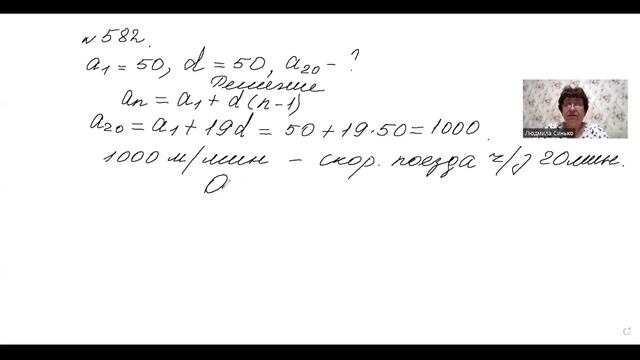 № 582.
a₁ = 50, d = 50, a₂₀ – ?
Решение
aₙ = a₁ + d (n–1)
a₂₀ = a₁ + 19d = 50 + 19·50 = 1000.
1000 м/мин – скор. поезда ч/з 20 мин.
О
Людмила Синько